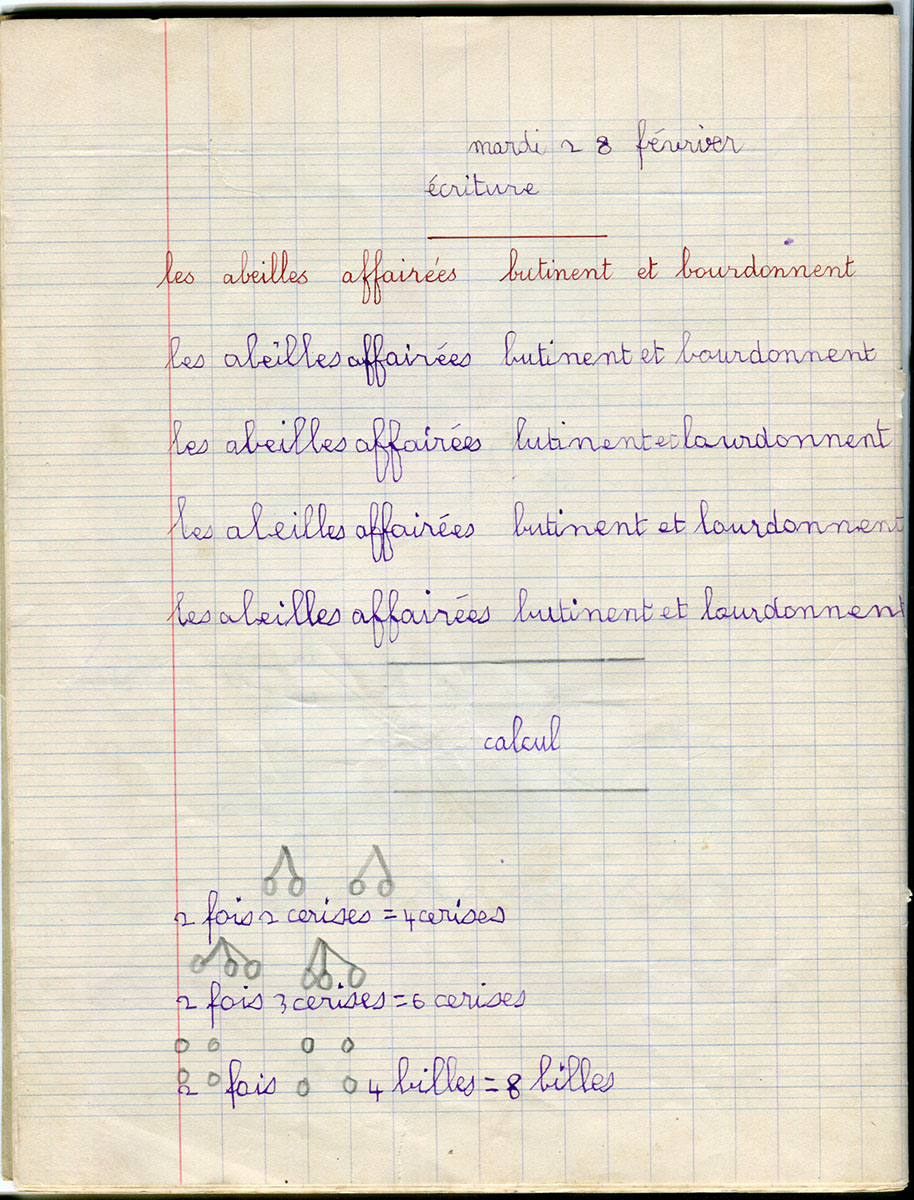 mardi 28 février
écriture
les abeilles affairées butinent et bourdonnent
les abeilles affairées butinent et bourdonnent
les abeilles affairées butinent et bourdonnent
les abeilles affairées butinent et bourdonnent
les abeilles affairées butinent et bourdonnent
calcul
2 fois 2 cerises = 4 cerises
2 fois 3 cerises = 6 cerises
2 fois 4 billes = 8 billes